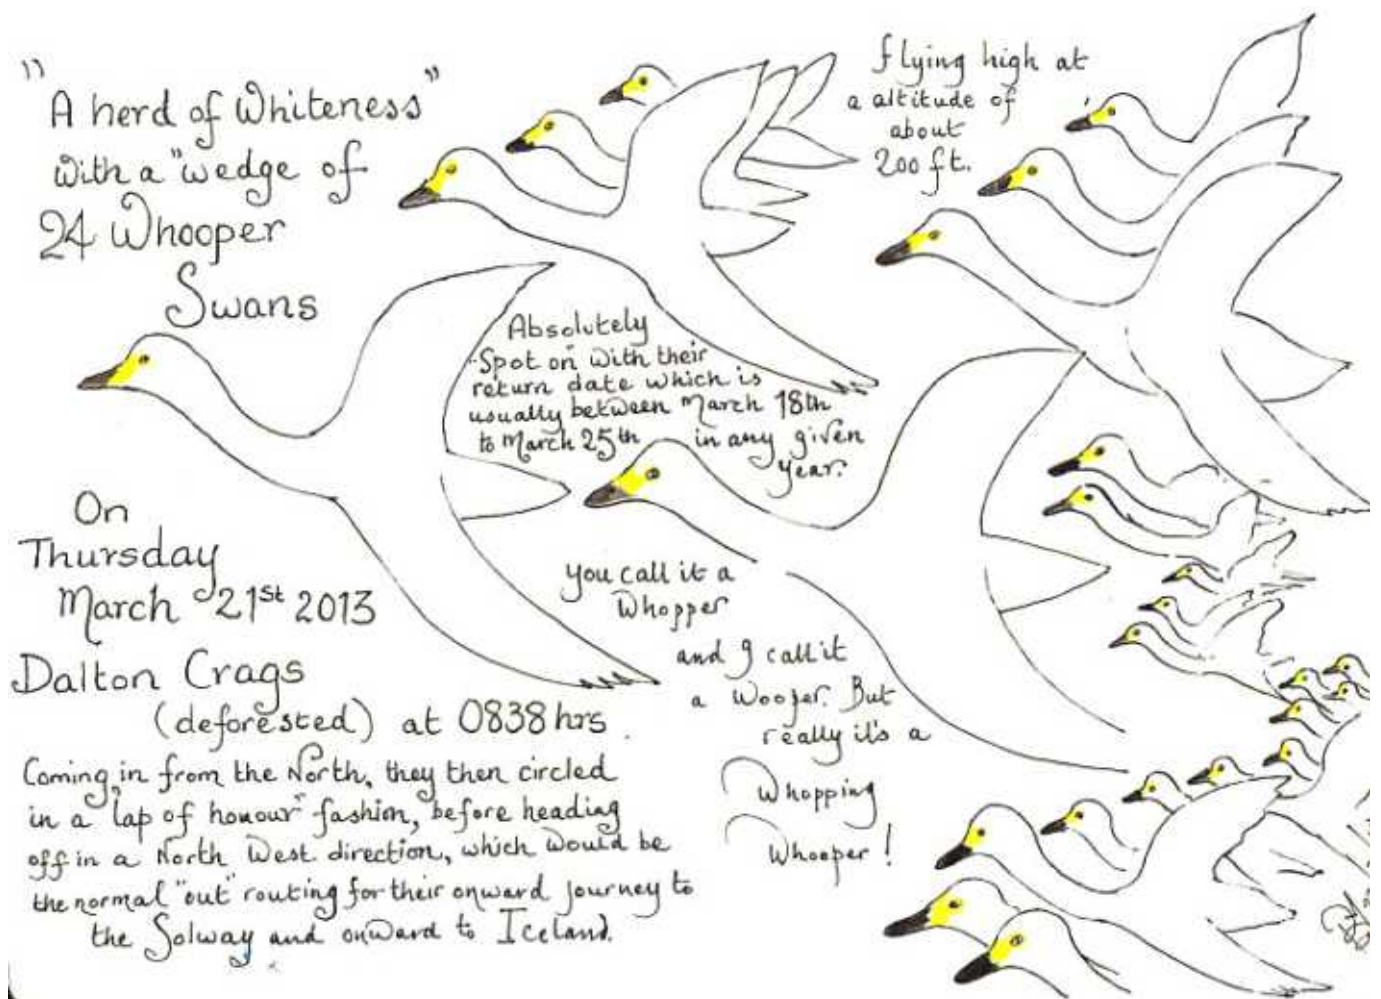 "A herd of Whiteness"
With a "wedge of
24 Whooper
Swans
flying high at
a altitude of
about
200 ft.
Absolutely
Spot on with their
return date which is
usually between March 18th
to March 25th in any given
year.
On
Thursday
March 21st 2013
Dalton Crags
(deforested) at 0838 hrs.
Coming in from the North, they then circled
in a "lap of honour" fashion, before heading
off in a North West direction, which would be
the normal "out" routing for their onward journey to
the Solway and onward to Iceland.
You call it a
Whopper
and I call it
a Woofer. But
really it's a
Whopping
Whooper!